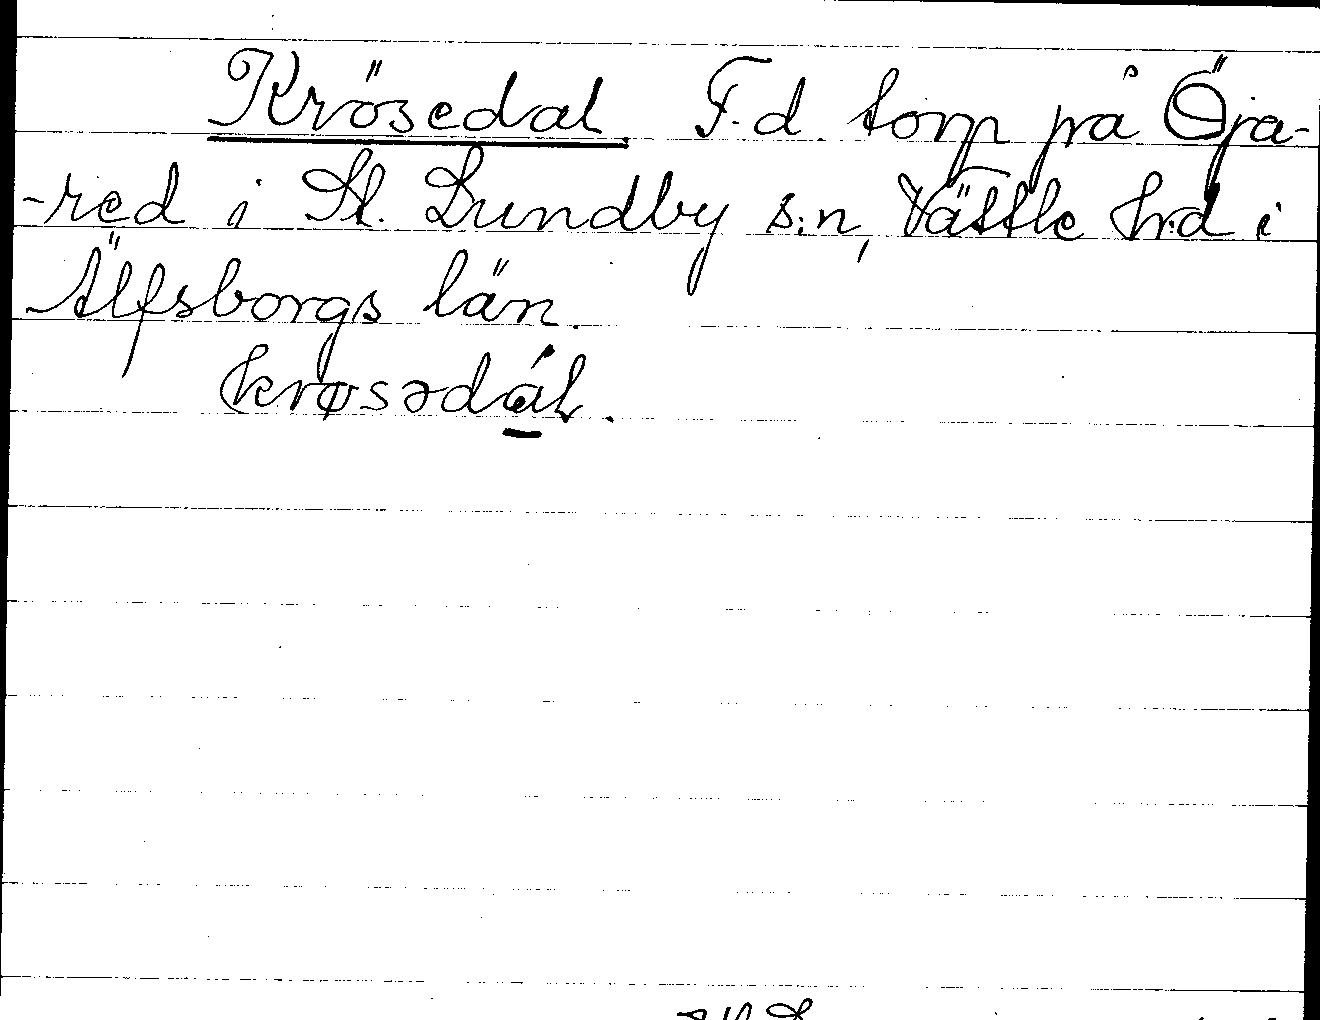 Krösedal. F.d. torp på Öja-
-red i St. Lundby s:n, Vättle h:d i
Älfsborgs län.
krøsədál.